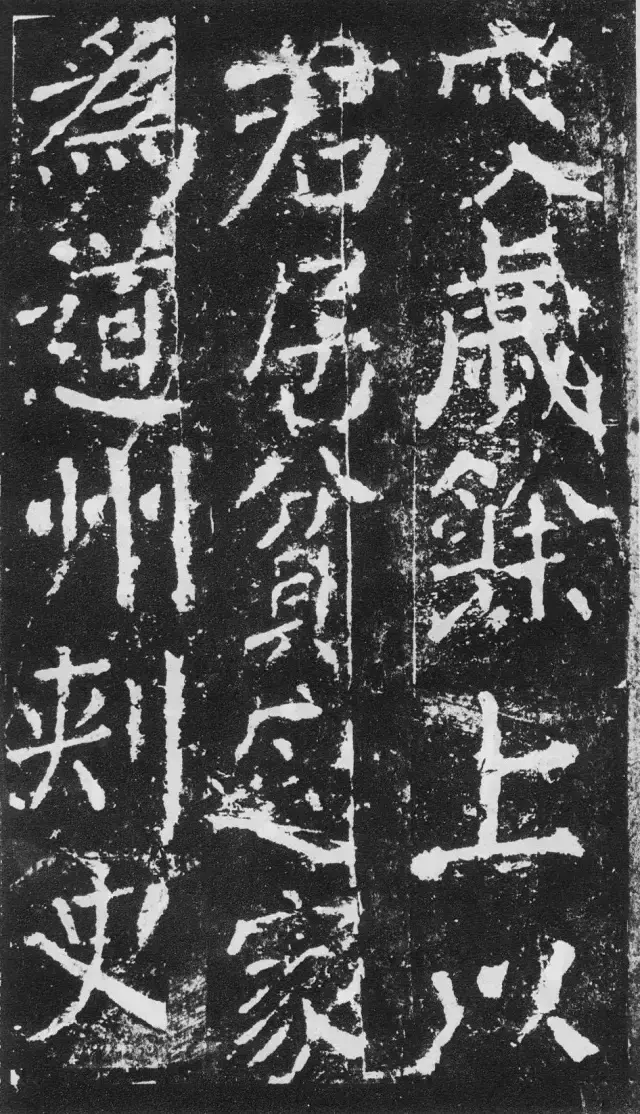 叜歲餘上以
君居貧起家
為道州刺史